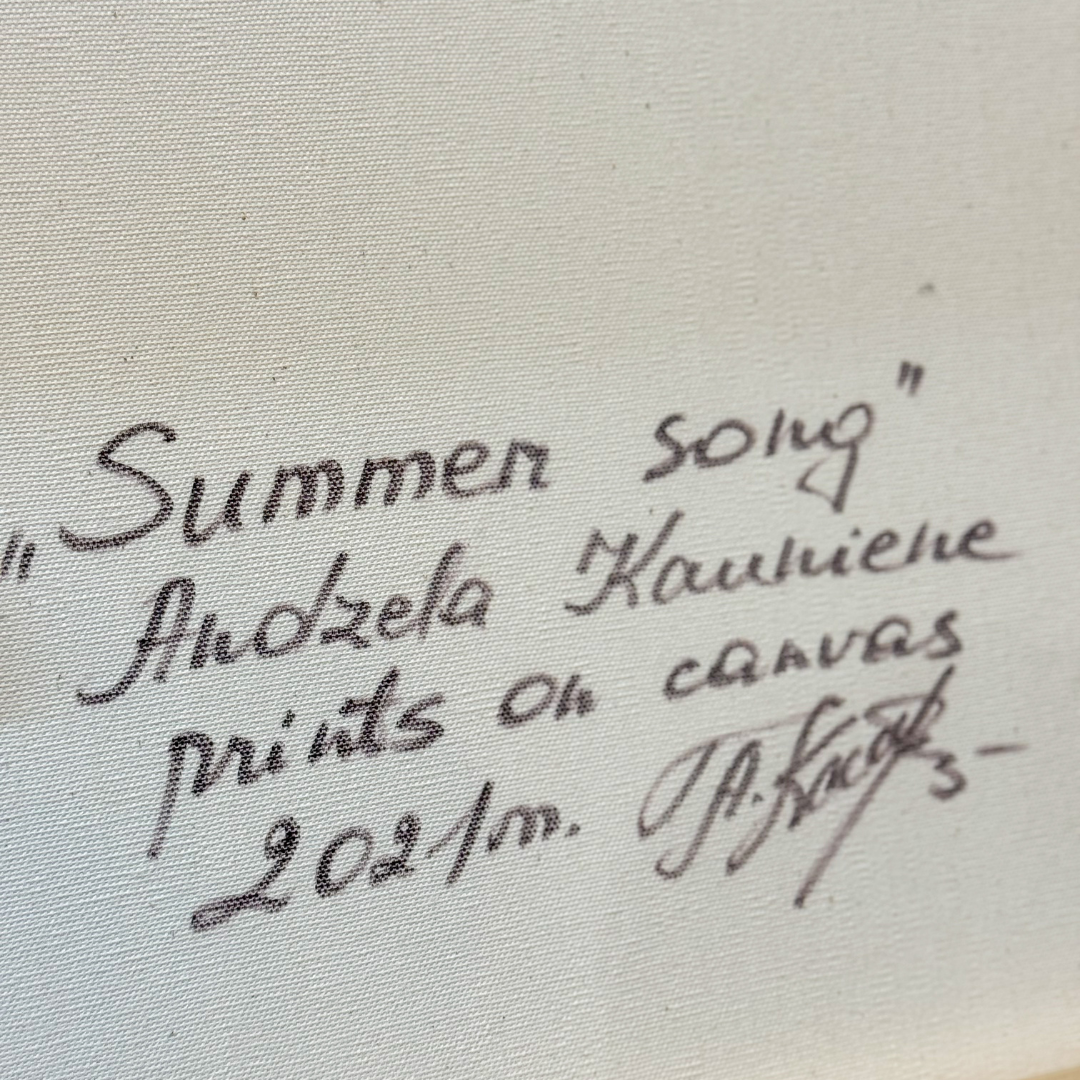 „Summer song"
Andzela Kauniene
prints on canvas
2021 m.